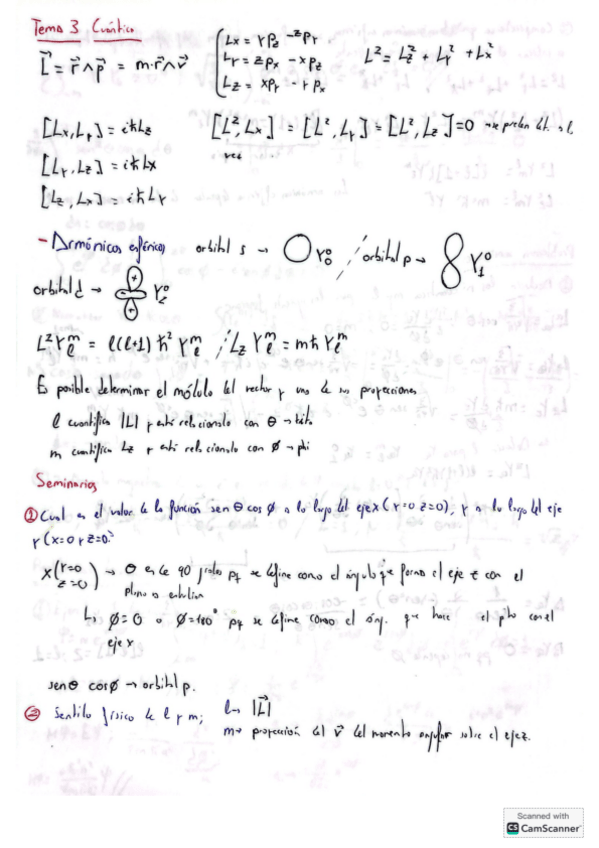 Tema 3 Cuántica
L⃗ = r⃗ ∧ p⃗ = m·r⃗ ∧ v⃗
Lx = Y pz - z py
Ly = z px - x pz
Lz = x py - y px
L² = Lz² + Ly² + Lx²
[Lx, Ly] = iℏLz
[L², Lx] = [L², Ly] = [L², Lz] = 0
[Ly, Lz] = iℏLx
[Lz, Lx] = iℏLy
- Armónicos esféricos
orbital s → Y₀⁰ / orbital p → Y₁⁰
orbital d → + + Y₂⁰
L² Yₗᵐ = l(l+1) ℏ² Yₗᵐ / Lz Yₗᵐ = mℏ Yₗᵐ
Es posible determinar el módulo del vector y una de sus proyecciones
l cuantifica |L| y está relacionado con θ → tita
m cuantifica Lz y está relacionado con ø → phi
Seminarios
① Cual es el valor de la función sen θ cos ø a lo largo del eje x (y=0 z=0), y a lo largo del eje
y (x=0 y z=0).
x (y=0 z=0) → θ es de 90 grados pq se define como el ángulo que forma el eje z con el
plano
↳ ø=0 o ø=180° pq se define como el áng. que hace el pto con el
eje x
senθ cosø → orbital p.
② Sentido físico de l y m;
l → |L⃗|
m → proyección del v⃗ del momento angular sobre el eje z.
Scanned with
CS CamScanner